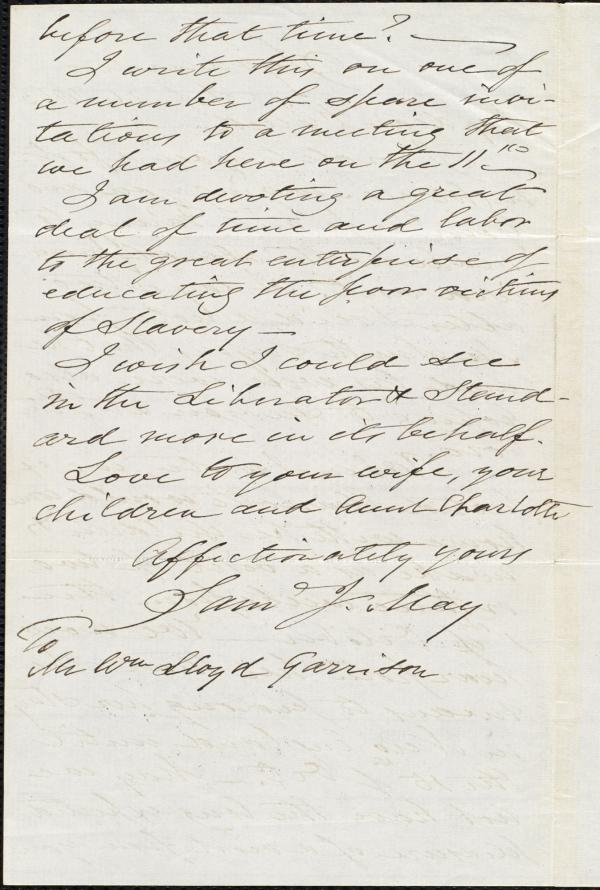 before that time? —
I write this on one of
a number of spare invi-
tations to a meeting that
we had here on the 11th—
I am devoting a great
deal of time and labor
to the great enterprise of
educating the poor victims
of Slavery —
I wish I could see
in the Liberator & Stand-
ard more in its behalf.
Love to your wife, your
children and Aunt Charlotte
Affectionately yours
Sam J. May
To
Mr Wm Lloyd Garrison